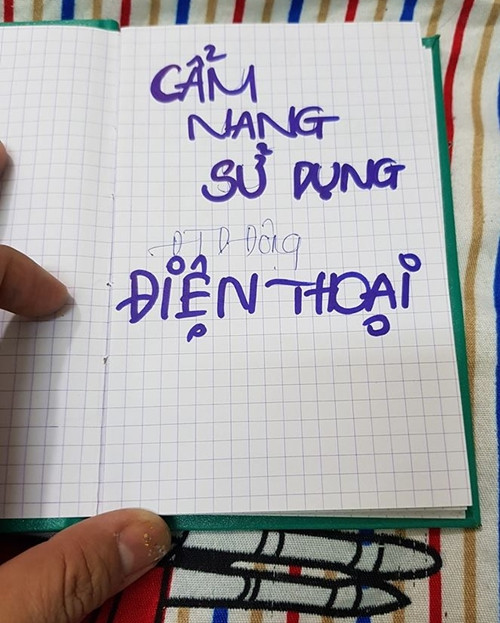 CẨM
NANG
SỬ DỤNG
ĐT D Động
ĐIỆN THOẠI